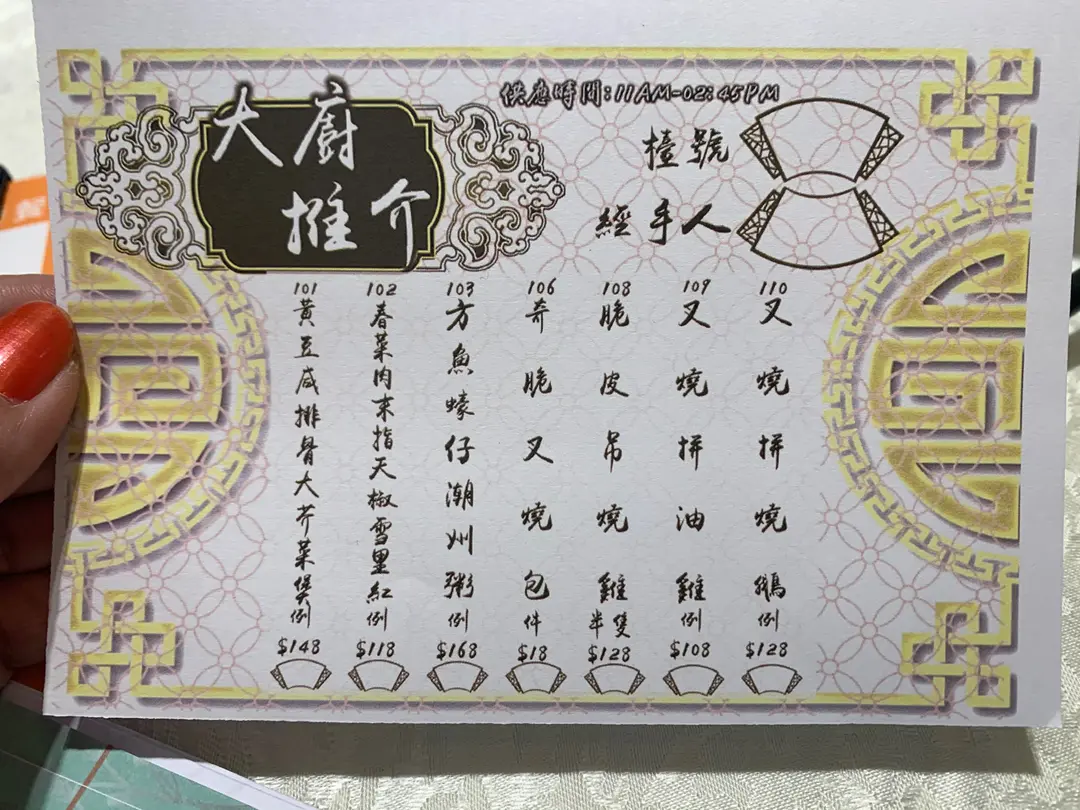 大廚
推介
供應時間:11AM-02:45PM
檯號
經手人
101
黃豆咸排骨大芥菜煲例
$148
102
春菜肉末指天椒雪里紅例
$118
103
方魚蠔仔潮州粥例
$168
106
奇脆叉燒包件
$18
108
脆皮吊燒雞半隻
$128
109
叉燒拼油雞例
$108
110
叉燒拼燒鵝例
$128